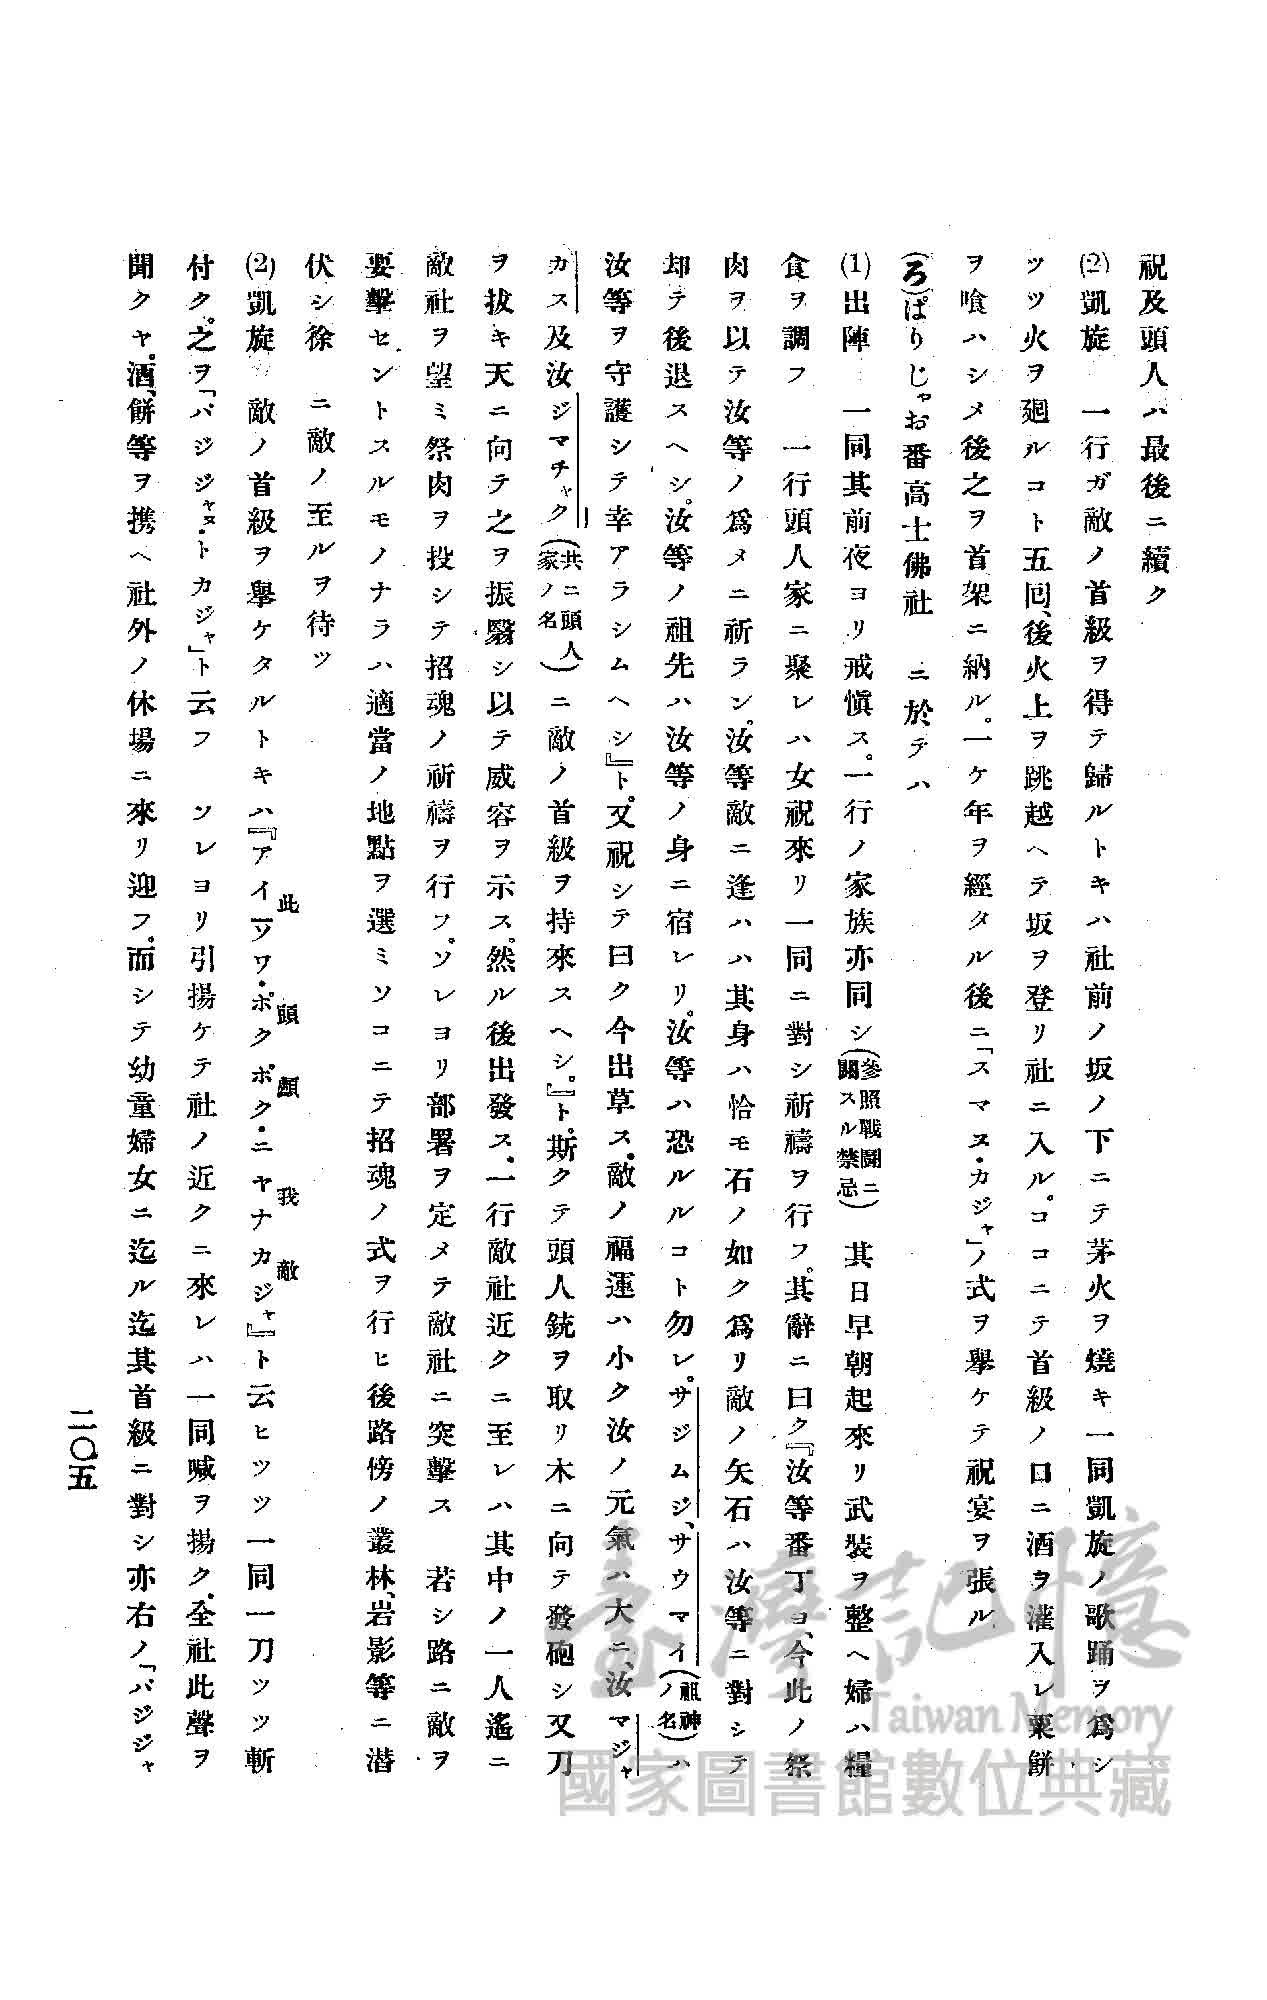 祝及頭人ハ最後ニ續ク
(2)凱旋　一行ガ敵ノ首級ヲ得テ歸ルトキハ社前ノ坂ノ下ニテ茅火ヲ燒キ一同凱旋ノ歌踊ヲ爲シ
ツツ火ヲ廻ルコト五囘、後火上ヲ跳越ヘテ坂ヲ登リ社ニ入ル。ココニテ首級ノ口ニ酒ヲ灌入レ粟餅
ヲ喰ハシメ後之ヲ首架ニ納ル。一ケ年ヲ經タル後ニ「スマヌ・カジャ」ノ式ヲ擧ケテ祝宴ヲ張ル
(ろ)ぱりじゃお番高士佛社　ニ於テハ
(1)出陣　一同其前夜ヨリ戒愼ス。一行ノ家族亦同シ(參照戰鬪ニ關スル禁忌)　其日早朝起來リ武裝ヲ整ヘ婦ハ糧
食ヲ調フ　一行頭人家ニ聚レハ女祝來リ一同ニ對シ祈禱ヲ行フ。其辭ニ曰ク『汝等番丁ヨ、今此ノ祭
肉ヲ以テ汝等ノ爲メニ祈ラン。汝等敵ニ逢ハハ其身ハ恰モ石ノ如ク爲リ敵ノ矢石ハ汝等ニ對シテ
却テ後退スヘシ。汝等ノ祖先ハ汝等ノ身ニ宿レリ。汝等ハ恐ルルコト勿レ。サジムジ、サウマイ(祖神ノ名)ハ
汝等ヲ守護シテ幸アラシムヘシ』ト。又祝シテ曰ク今出草ス。敵ノ福運ハ小ク汝ノ元氣ハ大ニ、汝マジャ
カス及汝ジマチャク(共ニ頭人家ノ名)ニ敵ノ首級ヲ持來スヘシ。』ト。斯クテ頭人銃ヲ取リ木ニ向テ發砲シ又刀
ヲ拔キ天ニ向テ之ヲ振翳シ以テ威容ヲ示ス。然ル後出發ス、一行敵社近クニ至レハ其中ノ一人遙ニ
敵社ヲ望ミ祭肉ヲ投シテ招魂ノ祈禱ヲ行フ。ソレヨリ部署ヲ定メテ敵社ニ突擊ス　若シ路ニ敵ヲ
要擊セントスルモノナラハ適當ノ地點ヲ選ミソコニテ招魂ノ式ヲ行ヒ後路傍ノ叢林、岩影等ニ潜
伏シ徐ニ敵ノ至ルヲ待ツ
此　頭　顱　我　敵
(2)凱旋　敵ノ首級ヲ擧ケタルトキハ『アイソワ・ポクポク・ニヤナカジャ』ト云ヒツツ一同一刀ツツ斬
付ク。之ヲ「バジジャヌ・トカジャ」ト云フ　ソレヨリ引揚ケテ社ノ近クニ來レハ一同喊ヲ揚ク。全社此聲ヲ
聞クヤ。酒、餅等ヲ携ヘ社外ノ休場ニ來リ迎フ。而シテ幼童婦女ニ迄ル迄其首級ニ對シ亦右ノ「バジジャ
二〇五
臺灣記憶
Taiwan Memory
國家圖書館數位典藏